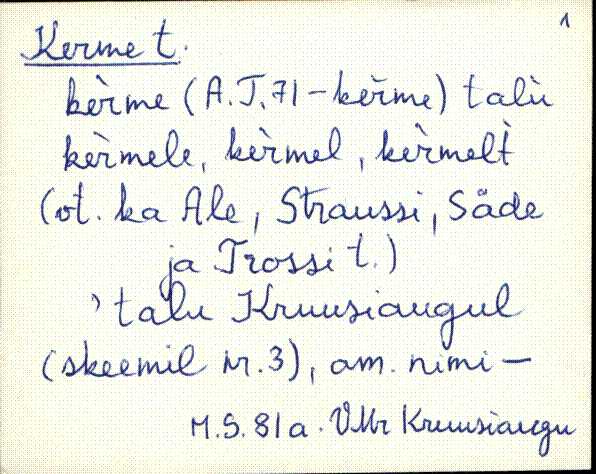 1
Kerme t.
kèrme (A.T. 71 – kèrme) talù
kèrmele, kèrmel, kèrmelt
(vt. ka Ale, Straussi, Säde
ja Trossi t.)
, talu Kruusiaugul
(skeemil nr. 3), am. nimi –
M.S. 81 a. VMr Kruusiaugu